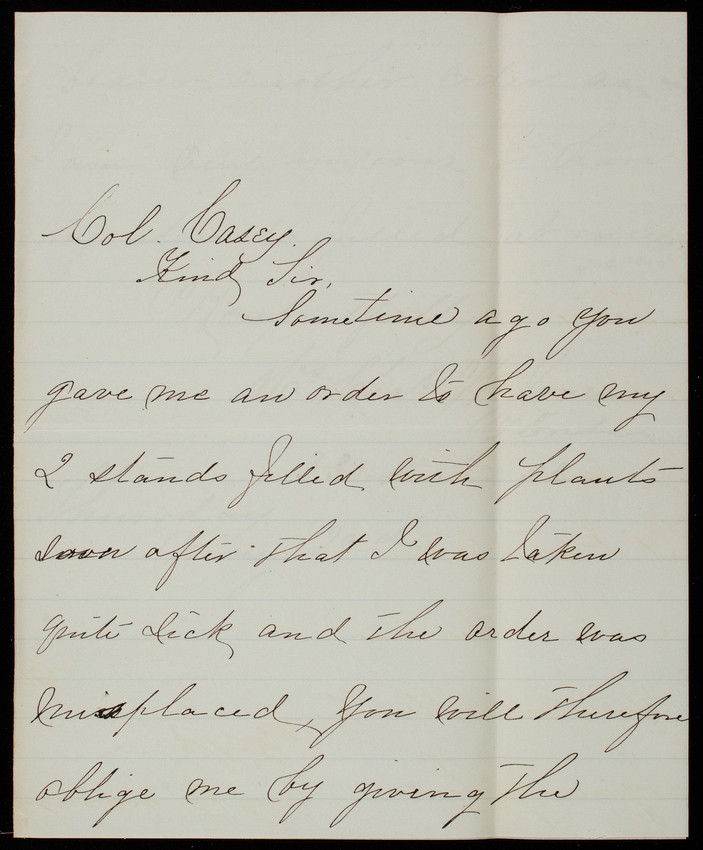 Col. Casey.
Kind Sir,
Sometime ago you
gave me an order to have my
2 stands filled with plants
soon after that I was taken
quite sick and the order was
misplaced, you will therefore
oblige me by giving the